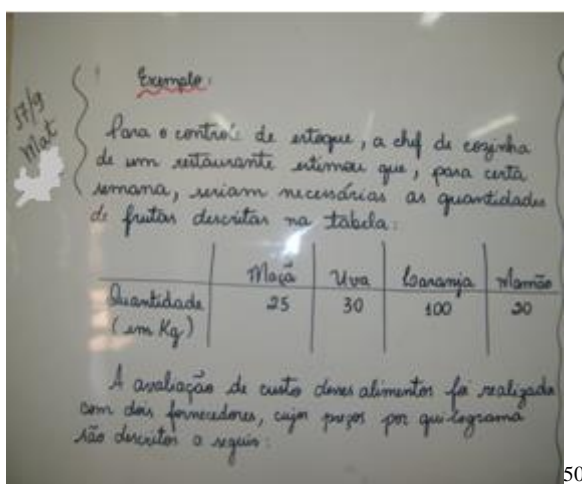 17/9
Mat
Exemplo:
Para o controle de estoque, a chef de cozinha
de um restaurante estimou que, para certa
semana, seriam necessárias as quantidades
de frutas descritas na tabela:
Maçã Uva Laranja Mamão
Quantidade 25 30 100 20
(em Kg)
A avaliação de custo desses alimentos foi realizada
com dois fornecedores, cujos preços por quilograma
são descritos a seguir:
50